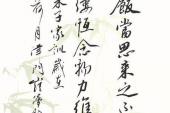 飯當思來之不
縷恒念物力維
朱子家訓歲在
月